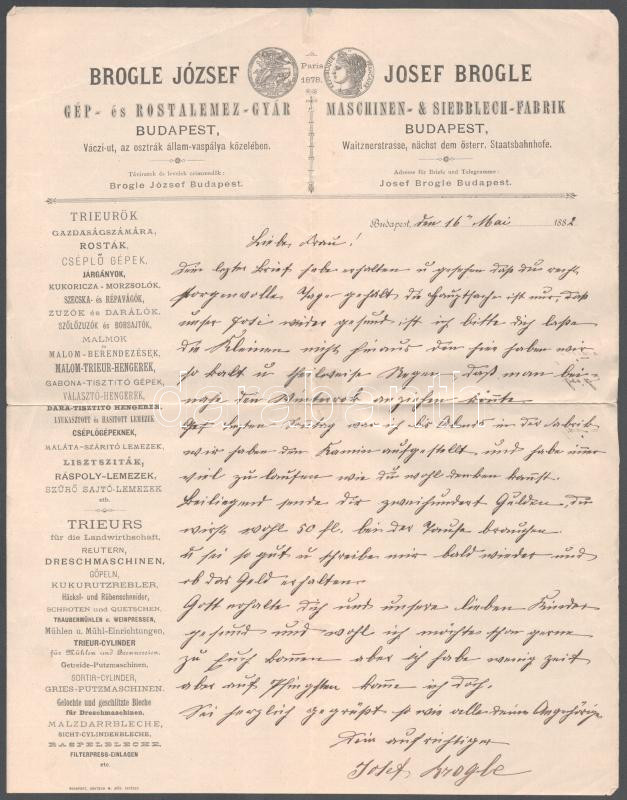 BROGLE JÓZSEF
GÉP- és ROSTALEMEZ-GYÁR
BUDAPEST,
Váczi-ut, az osztrák állam-vaspálya közelében.
Táviratok és levelek czimzendők:
Brogle József Budapest.
Paris
1878.
JOSEF BROGLE
MASCHINEN- & SIEBBLECH-FABRIK
BUDAPEST,
Waitznerstrasse, nächst dem österr. Staatsbahnhofe.
Adresse für Briefe und Telegramme:
Josef Brogle Budapest.
TRIEURÖK
GAZDASÁGSZÁMÁRA,
ROSTÁK,
CSÉPLŐ GÉPEK,
JÁRGÁNYOK,
KUKORICZA-MORZSOLÓK,
SZECSKA- és RÉPAVÁGÓK,
ZUZÓK és DARÁLÓK,
SZŐLŐZUZÓK és BORSAJTÓK,
MALMOK
MALOM-BERENDEZÉSEK,
MALOM-TRIEUR-HENGEREK,
GABONA-TISZTITÓ GÉPEK,
VÁLASZTÓ-HENGEREK,
DARA-TISZTITÓ HENGEREK,
LYUKASZTOTT és HASITOTT LEMEZEK
CSÉPLŐGÉPEKNEK,
MALÁTA-SZÁRITÓ LEMEZEK,
LISZTSZITÁK,
RÁSPOLY-LEMEZEK,
SZŰRŐ SAJTÓ-LEMEZEK
stb.
TRIEURS
für die Landwirthschaft,
REUTERN,
DRESCHMASCHINEN,
GÖPELN,
KUKURUTZREBLER,
Häcksl- und Rübenschneider,
SCHROTEN und QUETSCHEN,
TRAUBENMÜHLEN u. WEINPRESSEN,
Mühlen u. Mühl-Einrichtungen,
TRIEUR-CYLINDER
für Mühlen und Brennereien.
Getreide-Putzmaschinen,
SORTIR-CYLINDER,
GRIES-PUTZMASCHINEN.
Gelochte und geschlitzte Bleche
für Dreschmaschinen,
MALZDARRBLECHE,
SICHT-CYLINDERBLECHE,
RASPELBLECHE,
FILTERPRESS-EINLAGEN
etc.
Budapest, den 16ten Mai 1882
Liebe Frau!
Dein letzter Brief habe erhalten u gesehen daß du recht
sorgenvolle Tage gehabt die Hauptsache ist nur, daß
unser wider gesund ist ich bitte dich laße
die Kleinen nicht hinaus den hier haben wir
so kalt u theilweise Regen daß man bei-
nahe den Winterrock anziehen könnte
letzten Sonntag war ich bis Abends in der Fabrik
wir haben den Kamin aufgestellt und habe immer
viel zu laufen wie du wohl denken kanst.
Beiliegend sende dir zweihundert Gulden, du
wirst wohl 50 fl. bei der Taufe brauchen
u sei so gut u schreibe mir bald wieder und
ob das Geld erhalten
Gott erhalte dich und unsere lieben Kinder
gesund und wohl ich möchte schon gerne
zu Euch kommen aber ich habe wenig zeit
aber auf Pfingsten komme ich doch.
Sei herzlich gegrüßt so wie alle deine Angehörige
Dein aufrichtiger
Josef Brogle
darabanth